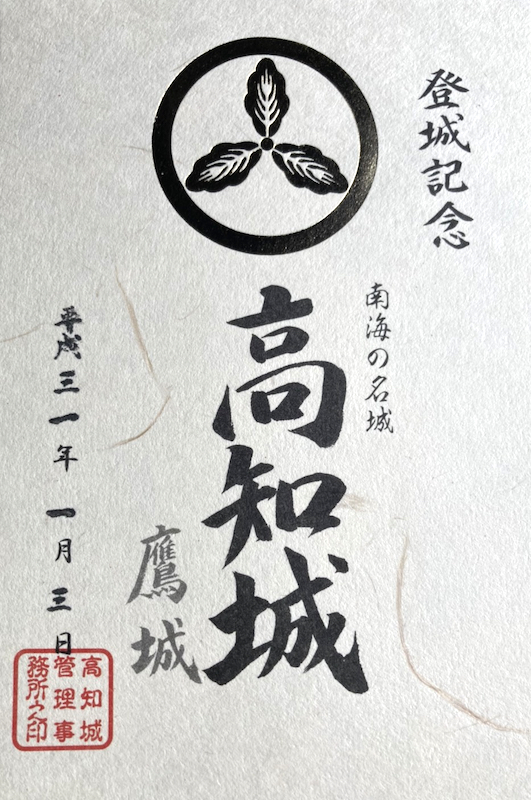 登城記念
南海の名城
高知城
鷹城
平成三一年一月三日
高知城
管理事
務所之印